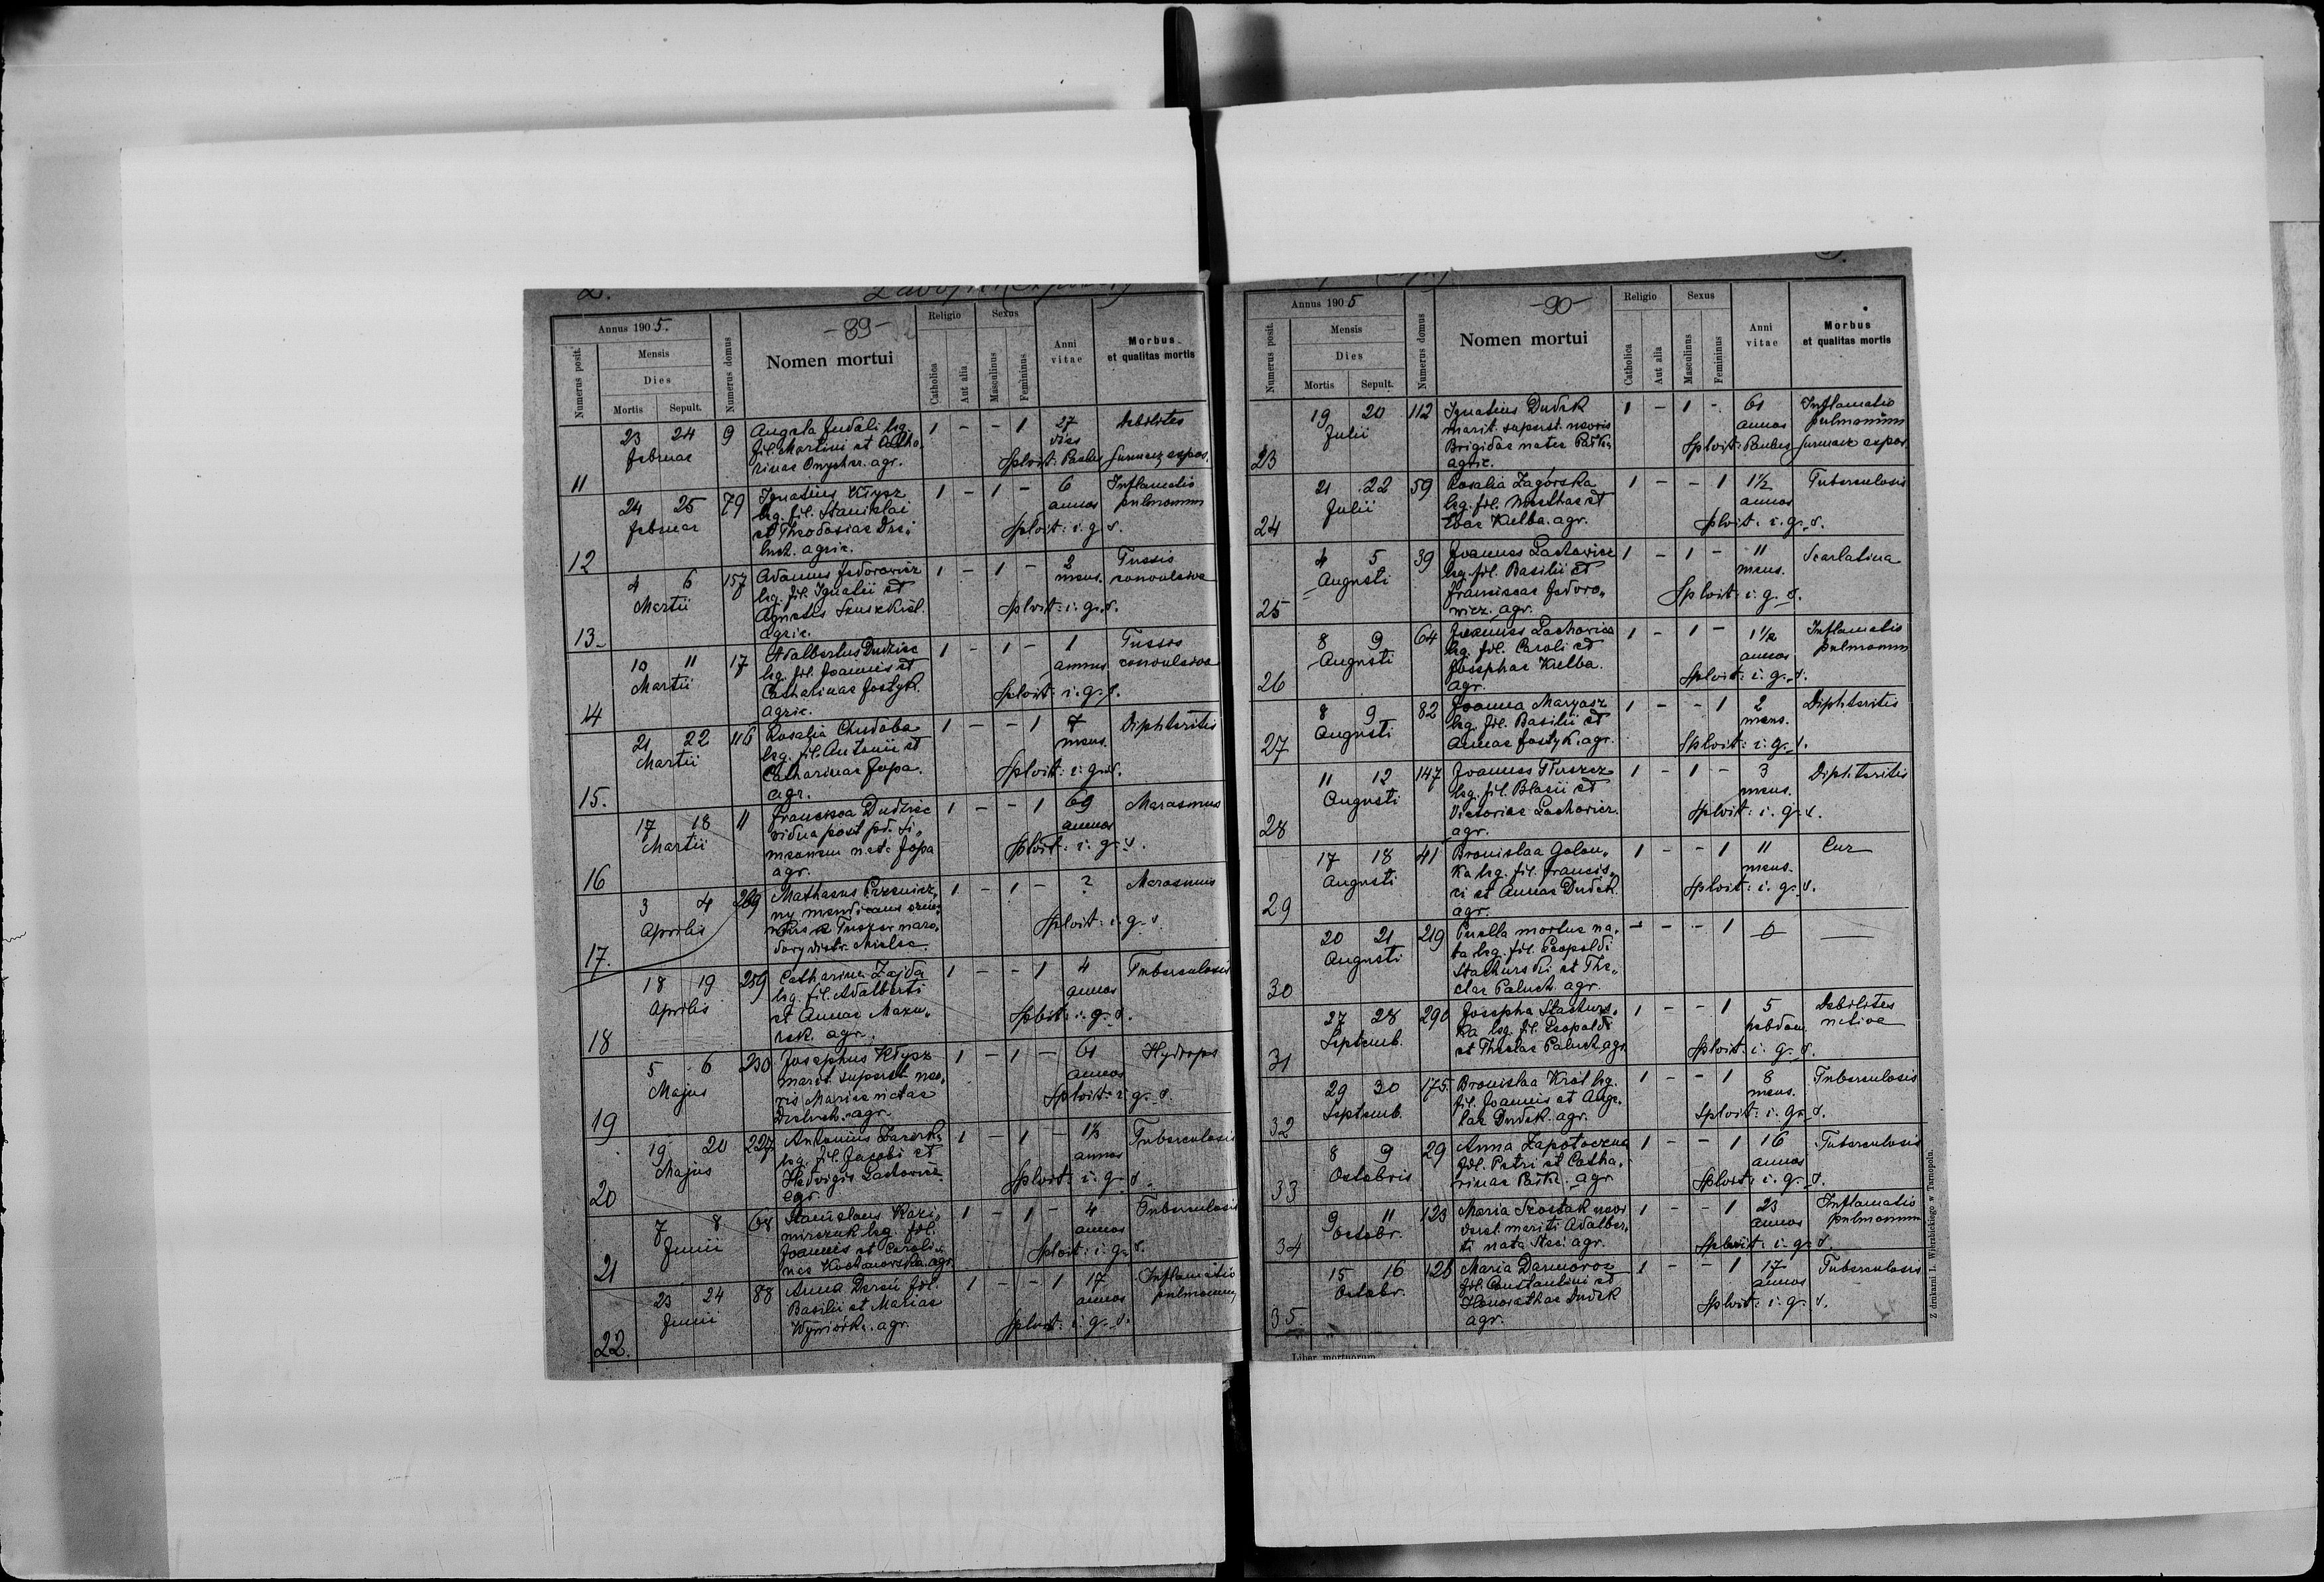 2.
Annus 1905.
-89-
Numerus posit.
Mensis
Dies
Mortis Sepult.
Numerus domus
Nomen mortui
Religio
Catholica
Aut alia
Sexus
Masculinus
Femininus
Anni vitae
Morbus et qualitas mortis
11 23 24 9 Angela Judali leg. 1 - - 1 27 Debilitas
Februar fil. Martini et Catha, dies
rinae Onyszker. agr. Splvit: Paulus Surmacz expos.
12 24 25 79 Ignatius Kłysz 1 - 1 - 6 Inflamatio
Februar leg. fil. Stanislai annos pulmonum
et Theodosiae Dre, Splvit: i. g. s.
luch. agric.
13 4 6 157 Adamus Fedorowicz 1 - 1 - 2 Tussis
Martii leg. fil. Ignatii et mens. convulsiva
Agnetis Szuszkiel. Splvit: i. g. s.
agric.
14 10 11 17 Adalbertus Dudziec 1 - 1 - 1 Tussis
Martii leg. fil. Joannis et annus convulsiva
Catharinae Jostyk. Splvit: i. g. s.
agric.
15. 21 22 116 Rosalia Chudoba 1 - - 1 7 Diphteritis
Martii leg. fil. Antonii et mens.
Catharinae Jopa. Splvit: i. g. s.
agr.
16 17 18 11 Francisca Dudziec 1 - - 1 69 Marasmus
Martii vidua post fod. Si, annos
meonem nata Jopa Splvit: i. g. s.
agr.
17. 3 4 289 Mathaeus 1 - 1 - ? Marasmus
Aprilis ny mendicans
Splvit: i. g. s.
distr. Mielec.
18 18 19 259 Catharina Zajda 1 - - 1 4 Tuberculosis
Aprilis leg. fil. Adalberti annos
et Annae Mazu, Splvit: i. g. s.
rek. agr.
19 5 6 230 Josephus Kłysz 1 - 1 - 61 Hydrops
Majus marit. superst. uxo, annos
ris Mariae natae Splvit: i. g. s.
Dreluch. agr.
20 19 20 227 Antonius 1 - 1 - 1½ Tuberculosis
Majus leg. fil. Jacobi et annos
Hedvigis Lachowicz Splvit: i. g. s.
agr.
21 7 8 68 Stanislaus Kazi, 1 - 1 - 4 Tuberculosis
Junii mirczuk leg. fil. annos
Joannis et Caroli, Splvit: i. g. s.
nae Kochanowska. agr.
22. 23 24 88 Anna Dereń fil. 1 - - 1 17 Inflamatio
Junii Basilii et Mariae annos pulmonum
Wywiórka. agr. Splvit: i. g. s.
Annus 1905
-90-
Numerus posit.
Mensis
Dies
Mortis Sepult.
Numerus domus
Nomen mortui
Religio
Catholica
Aut alia
Sexus
Masculinus
Femininus
Anni vitae
Morbus et qualitas mortis
23 19 20 112 Ignatius Dudek 1 - 1 - 61 Inflamatio
Julii marit. superst. uxoris annos pulmonum
Brigidae natae Paśko Splvit: Paulus Surmacz expos.
agric.
24 21 22 59 Rosalia Zagórska 1 - - 1 1½ Tuberculosis
Julii leg. fil. Matthae et annos
Evae Kulba. agr. Splvit: i. g. s.
25 4 5 39 Joannes Lachowicz 1 - 1 - 11 Scarlatina
Augusti leg. fil. Basilii et mens.
Franciscae Fedoro, Splvit: i. g. s.
wicz. agr.
26 8 9 64 Joannes Lachowicz 1 - 1 - 1½ Inflamatio
Augusti leg. fil. Caroli et annos pulmonum
Josephae Kulba. Splvit: i. g. s.
agr.
27 8 9 82 Joanna Maryasz 1 - - 1 2 Diphteritis
Augusti leg. fil. Basilii et mens.
Annae Jostyk. agr. Splvit: i. g. s.
28 11 12 147 Joannes Tłuszcz 1 - 1 - 3 Diphteritis
Augusti leg. fil. Blasii et mens.
Victoriae Lachowicz. Splvit: i. g. s.
agr.
29 17 18 41 Bronislaa Golon, 1 - - 1 11
Augusti ka leg. fil. Francis, mens.
ci et Annae Dudek Splvit: i. g. s.
agr.
30 20 21 219 Puella mortua na, - - - 1 0 —
Augusti ta leg. fil. Leopoldi
Stachurski et The,
clae Paluch. agr.
31 27 28 290 Josepha Stachurs, 1 - - 1 5 Debilitas
Septemb. ka leg. fil. Leopoldi hebdom. nativa
et Theclae Paluch agr. Splvit: i. g. s.
32 29 30 175. Bronislaa Król leg. 1 - - 1 8 Tuberculosis
Septemb. fil. Joannis et Ange, mens.
lae Dudek. agr. Splvit: i. g. s.
33 8 9 29 Anna Zapotoczna 1 - - 1 16 Tuberculosis
Octobris fil. Petri et Catha, annos
rinae Paśko. agr Splvit: i. g. s.
34 9 11 123 Maria Szostak uxor 1 - - 1 23 Inflamatio
Octobr. derel. mariti Adalber, annos pulmonum
ti nata Stec. agr. Splvit: i. g. s.
35. 15 16 126 Maria Darmoroz 1 - - 1 17 Tuberculosis
Octobr. fil. Constantini et annos
Honorathae Dudek Splvit: i. g. s.
agr.
Liber mortuorum
Z drukarni L. Wierzbickiego w Tarnopolu.